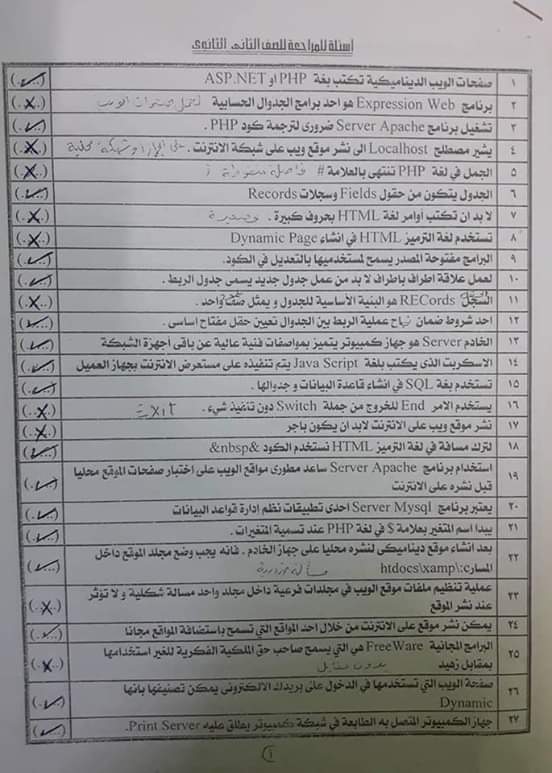 أسئلة للمراجعة للصف الثانى الثانوى
١ صفحات الويب الديناميكية تكتب بغة PHP او ASP.NET (✓)
٢ برنامج Expression Web هو احد برامج الجدوال الحسابية (X)
٣ تشغيل برنامج Server Apache ضرورى لترجمة كود PHP . (✓)
٤ يشير مصطلح Localhost الى نشر موقع ويب على شبكة الانترنت . (X)
٥ الجمل في لغة PHP تنتهى بالعلامة # فاصلة منقوطة ; (X)
٦ الجدول يتكون من حقول Fields وسجلات Records (✓)
٧ لا بد ان تكتب أوامر لغة HTML بحروف كبيرة . وصغيرة (X)
٨ تستخدم لغة الترميز HTML في انشاء Dynamic Page (X)
٩ البرامج مفتوحة المصدر يسمح لمستخدميها بالتعديل في الكود. (✓)
١٠ لعمل علاقة اطراف باطراف لا بد من عمل جدول جديد يسمى جدول الربط . (✓)
١١ السجل RECords هو البنية الأساسية للجدول و يمثل صف واحد . (X)
١٢ احد شروط ضمان نجاح عملية الربط بين الجدوال تعيين حقل مفتاح اساسى . (✓)
١٣ الخادم Server هو جهاز كمبيوتر يتميز بمواصفات فنية عالية عن باقى أجهزة الشبكة (✓)
١٤ الاسكربت الذى يكتب بلغة Java Script يتم تنفيذه على مستعرض الانترنت بجهاز العميل (✓)
١٥ تستخدم بغة SQL في انشاء قاعدة البيانات و جدوالها . (✓)
١٦ يستخدم الامر End للخروج من جملة Switch دون تنفيذ شيء . Exit (X)
١٧ نشر موقع ويب على الانترنت لابد ان يكون باجر (X)
١٨ لترك مسافة في لغة الترميز HTML نستخدم الكود &nbsp& (✓)
١٩ استخدام برنامج Server Apache ساعد مطورى مواقع الويب على اختبار صفحات الموقع محليا
قبل نشره على الانترنت (✓)
٢٠ يعتبر برنامج Server Mysql احدى تطبيقات نظم ادارة قواعد البيانات (✓)
٢١ يبدا اسم المتغير بعلامة $ في لغة PHP عند تسمية المتغيرات . (✓)
٢٢ بعد انشاء موقع ديناميكى لنشره محليا على جهاز الخادم . فانه يجب وضع مجلد الموقع داخل
المسار htdocs\xamp\:c (✓)
٢٣ عملية تنظيم ملفات موقع الويب في مجلدات فرعية داخل مجلد واحد مسالة شكلية و لا تؤثر
عند نشر الموقع (X)
٢٤ يمكن نشر موقع على الانترنت من خلال احد المواقع التي تسمح باستضافة المواقع مجانا (✓)
٢٥ البرامج المجانية FreeWare هي التي يسمح صاحب حق الملكية الفكرية للغير استخدامها
بمقابل زهيد بدون مقابل (X)
٢٦ صفحة الويب التي تستخدمها في الدخول على بريدك الالكترونى يمكن تصنيفها بانها
Dynamic (✓)
٢٧ جهاز الكمبيوتر المتصل به الطابعة في شبكة كمبيوتر يطلق عليه Print Server. (✓)
١